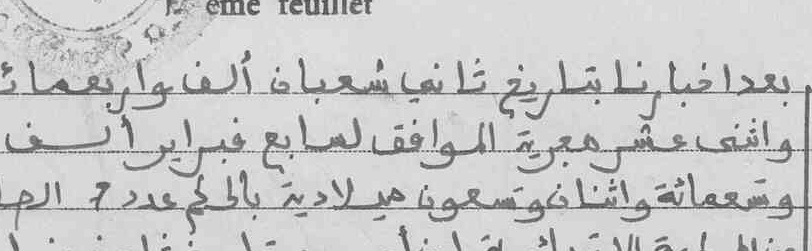 ème feuillet
بعد اخبارنا بتاريخ ثاني شعبان ألف واربعمائ
واثنى عشر هجرية الموافق لسابع فبراير ألف
وتسعمائة واثنان وتسعون ميلادية بالحكم عدد 7 الصا